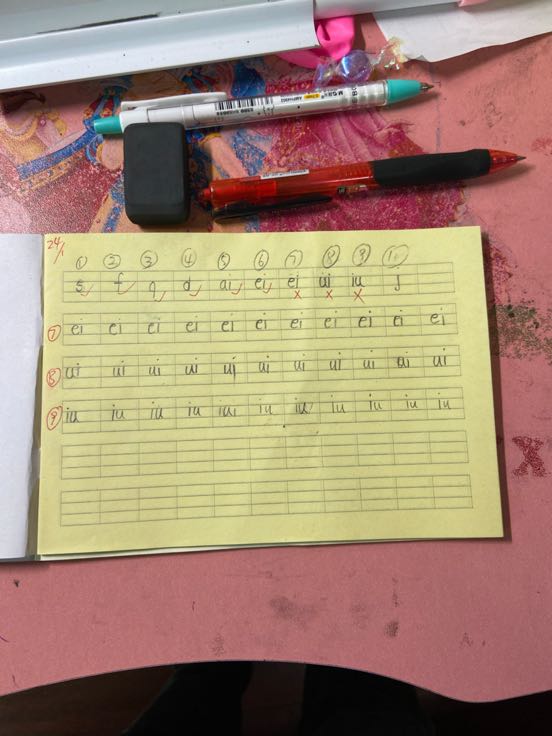 24/1
① ② ③ ④ ⑤ ⑥ ⑦ ⑧ ⑨ 10
s f q d ai ei ei ui iu j
⑦ ei ei ei ei ei ei ei ei ei ei ei
⑧ ui ui ui ui ui ui ui ui ui ui ui
⑨ iu iu iu iu iui iu iu iu iu iu iu